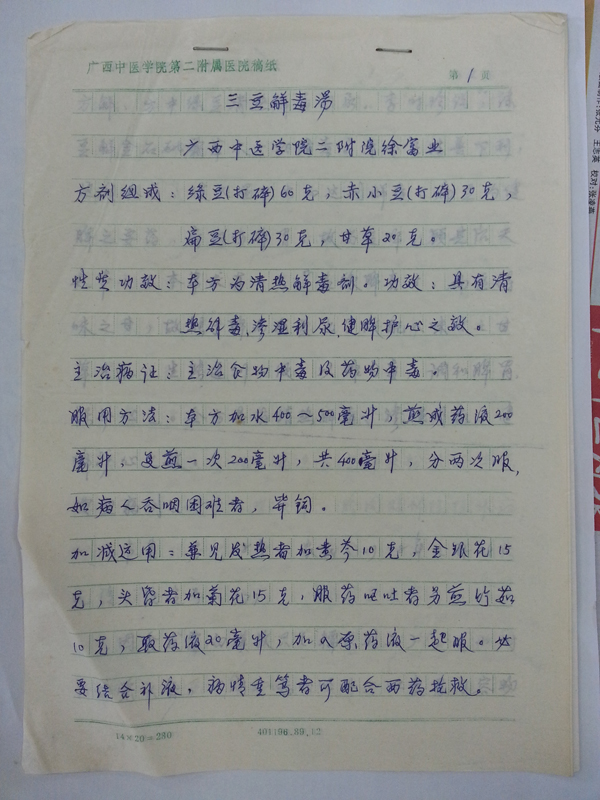 广西中医学院第二附属医院稿纸
第1页
三豆解毒汤
广西中医学院二附院徐富业
方剂组成：绿豆(打碎)60克，赤小豆(打碎)30克，
扁豆(打碎)30克，甘草20克。
性质功效：本方为清热解毒剂。功效：具有清
热解毒、渗湿利尿、健脾护心之效。
主治病证：主治食物中毒及药物中毒。
服用方法：本方加水400～500毫升，煎成药液200
毫升，复煎一次200毫升，共400毫升，分两次服，
如病人吞咽困难者，鼻饲。
加减运用：兼见发热者加黄芩10克，金银花15
克，头昏者加菊花15克，服药呕吐者另煎竹茹
10克，取药液20毫升，加入原药液一起服。必
要结合补液，病情重笃者可配合西药抢救。
14×20=280
校对:张凌富